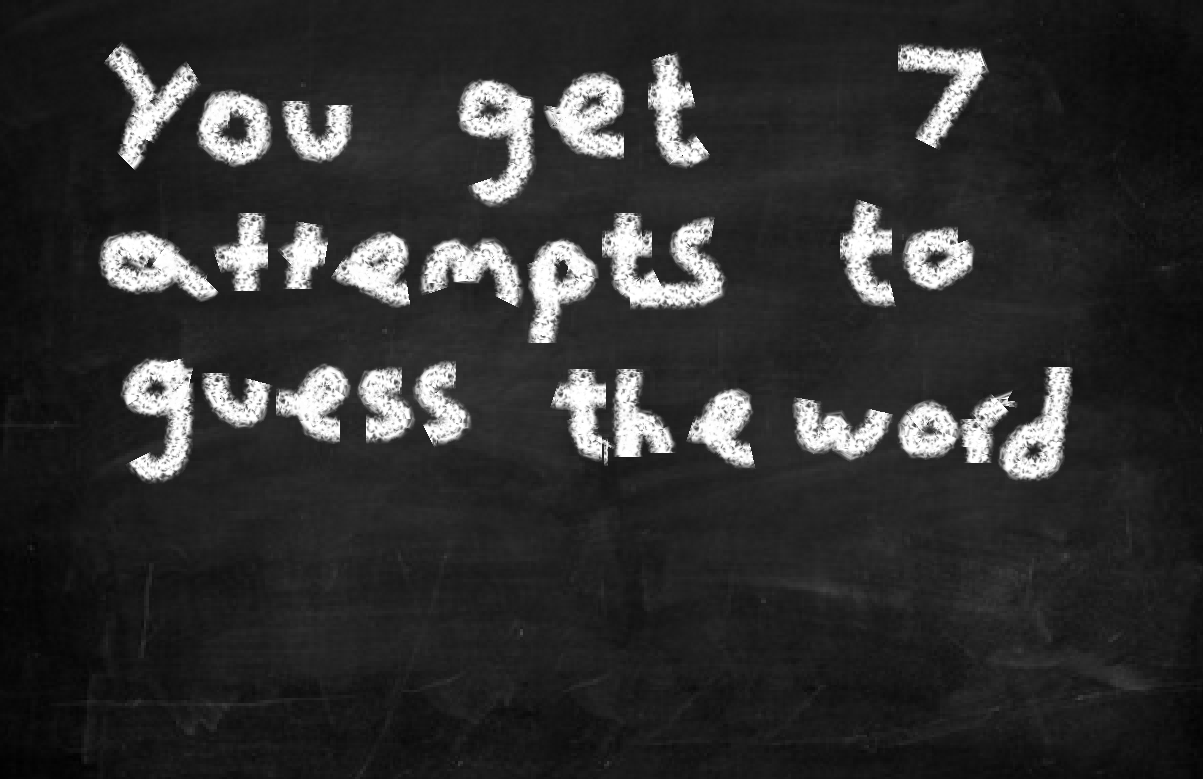 You get 7
attempts to
guess the word